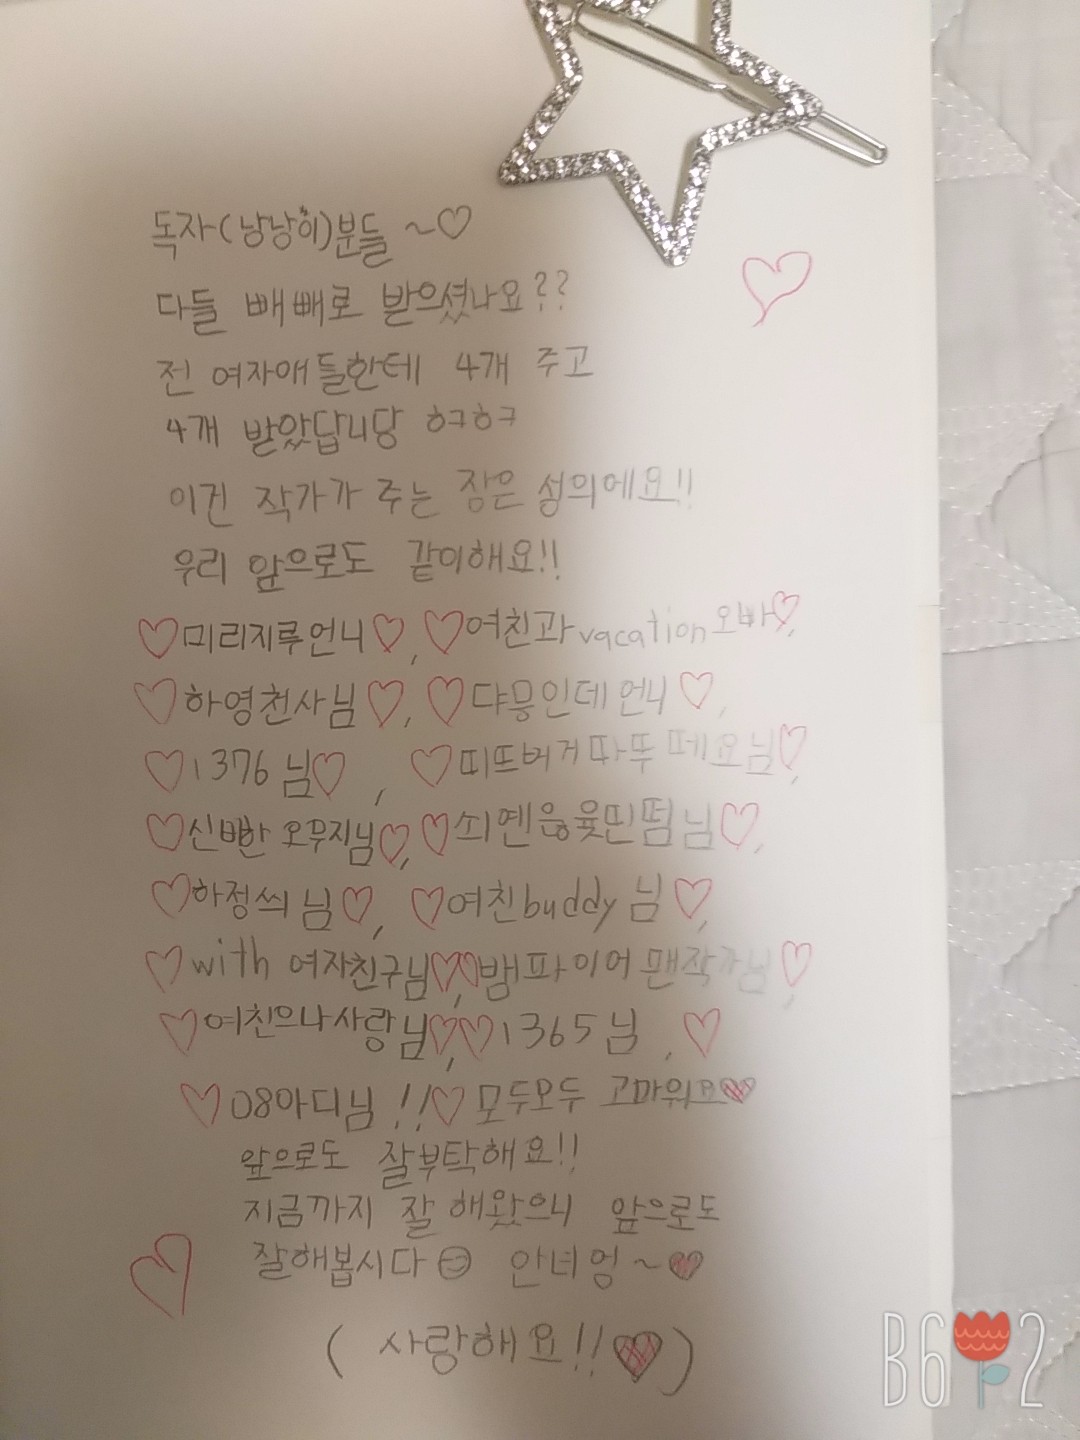 독자(낭낭히)분들 ~♡
다들 빼빼로 받으셨나요??
전 여자애들한테 4개 주고
4개 받았답니당 ㅎㅋㅎㅋ
이건 작가가 주는 작은 성의에요!!
우리 앞으로도 같이해요!!
♡미리지루언니♡, ♡여친과vacation오빠♡,
♡하영천사님♡, ♡댜믕인데언니♡,
♡1376님♡, ♡띠뜨버거따뚜떼요님♡,
♡신빵한 오무지님♡, ♡님♡,
♡하정씌님♡, ♡여친buddy님♡,
♡with 여자친구님♡, ♡뱀파이어 맨작가님♡,
♡여친으나사랑님♡, ♡1365님, ♡
♡08아디님!!♡ 모두모두 고마워요♥
앞으로도 잘부탁해요!!
지금까지 잘 해왔으니 앞으로도
잘해봅시다 안녀엉~♥
( 사랑해요!!♥)
B612